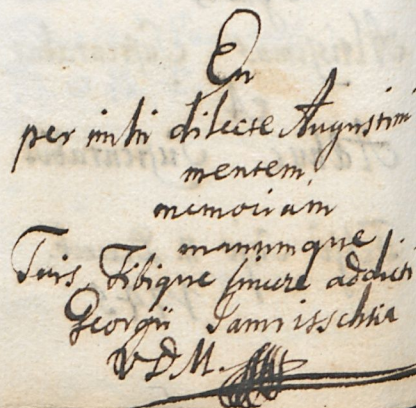 En
per mihi dilecte Augustini
mentem
memoriam
manumque
Tuis, Tibique sincere addicti
Georgii
V. D. M.